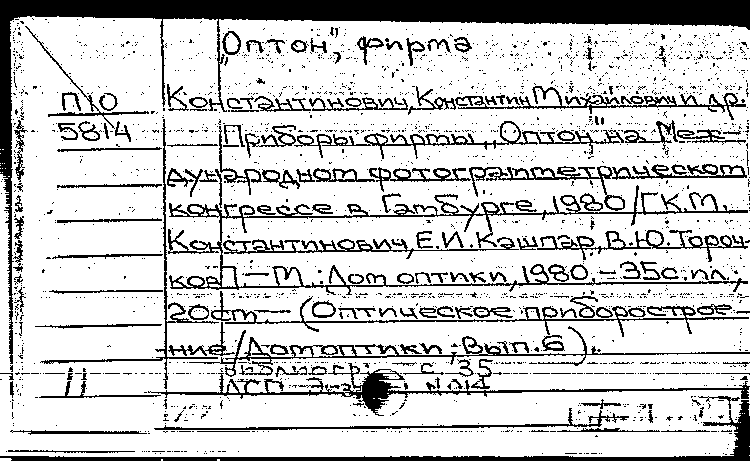 „Оптон", фирма
П10 Константинович, Константин Михайлович и др.
5814 Приборы фирмы „Оптон" на Меж-
дународном фотограмметрическом
конгрессе в Гамбурге, 1980 / К.М.
Константинович, Е.И. Кашпар, В.Ю. Тороч-
ков. - М.: Дом оптики, 1980. - 35с. ил.;
20см. - (Оптическое приборострое-
ние / Дом оптики; Вып. 6).
Библиогр.: с. 35
11 ДСП Экз. N 014